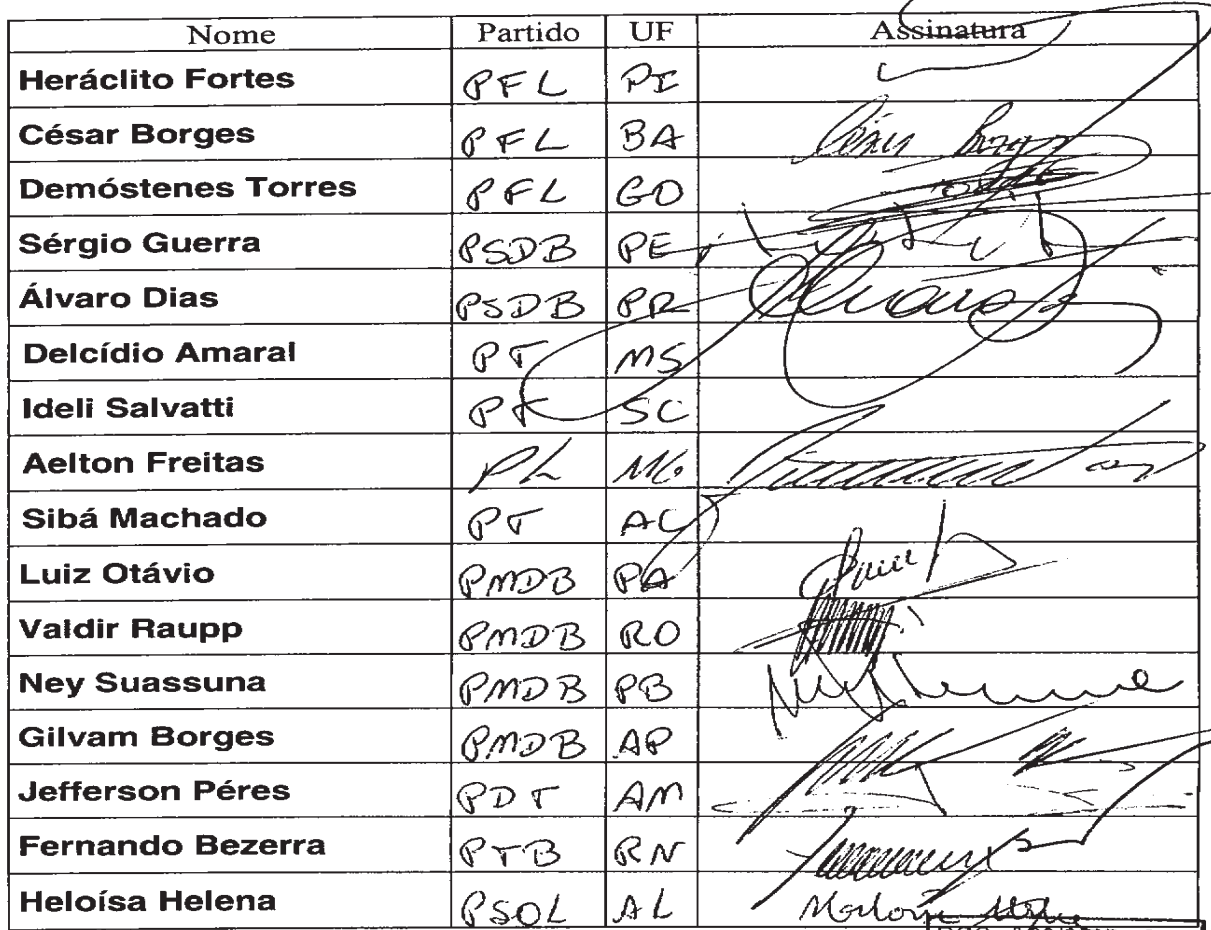 Nome Partido UF Assinatura
Heráclito Fortes PFL PI
César Borges PFL BA César Borges
Demóstenes Torres PFL GO
Sérgio Guerra PSDB PE
Álvaro Dias PSDB PR
Delcídio Amaral PT MS
Ideli Salvatti PT SC
Aelton Freitas PL MG
Sibá Machado PT AC
Luiz Otávio PMDB PA
Valdir Raupp PMDB RO
Ney Suassuna PMDB PB
Gilvam Borges PMDB AP
Jefferson Péres PDT AM
Fernando Bezerra PTB RN
Heloísa Helena PSOL AL